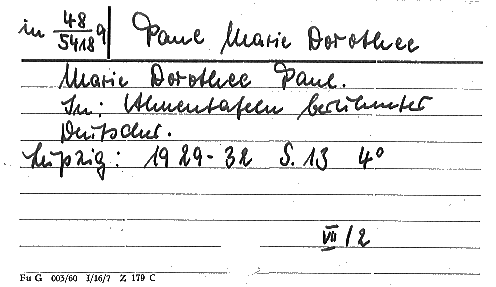 in 48/5418 q | Paul Marie Dorothee
Marie Dorothee Paul.
In: Ahnentafeln berühmter
Deutscher.
Leipzig: 1929-32 S. 13 4°
VII/2
Fu G 003/60 I/16/7 Z 179 C